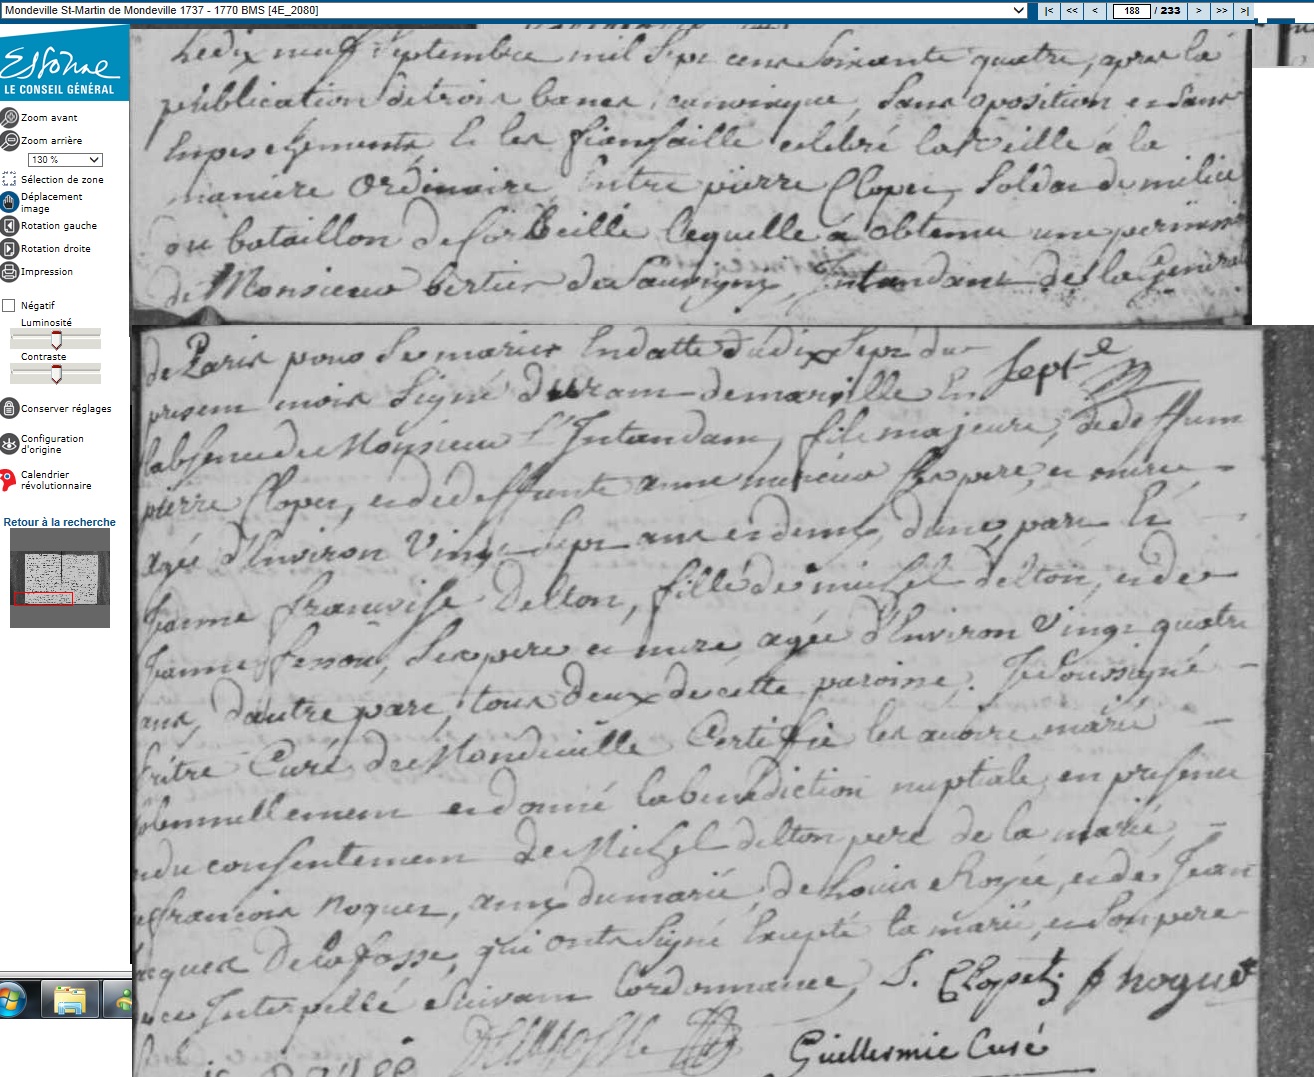 Mondeville St-Martin de Mondeville 1737 - 1770 BMS [4E_2080]
|< << < 188 / 233 > >> >|
Essonne
LE CONSEIL GÉNÉRAL
Zoom avant
Zoom arrière
130 %
Sélection de zone
Déplacement
image
Rotation gauche
Rotation droite
Impression
Négatif
Luminosité
Contraste
Conserver réglages
Configuration
d'origine
Calendrier
révolutionnaire
Retour à la recherche
Le dix neuf Septembre mil Sept cens Soixante quatre, apres la
publication de trois bancs, canonique, Sans oposition en Sans
Empeschements et les fiansaille celebré la Veille a la
maniere Ordinaire Entre pierre Clopet, Soldat de milice
au bataillon de Corbeille lequelle a obtenu une
de Monsieur bertier de Sauvigny, Intandant de la
de Paris pour Se marier En datte du dix Sept du
present mois Signé demarville En Septe
l'absence de Monsieur l'Intandant, fils majeure, de deffunt
pierre Clopet, et de deffunte anne Ses pere, et mere
agé d'Environ Vingt Sept ans et demy, d'une part Et
Jeanne françoise delton, fille de michel delton, et de
Jeanne Ses pere et mere, agée d'Environ Vingt quatre
ans, d'autre part, tous deux de cette paroisse. Je Soussigné
Prêtre Curé de Mondeville Certifie les avoire marié
Solemnellement et donné la benediction nuptiale, en presence
et du consentement de Michel delton pere de la marié,
de francois noquet, amy du marié, de Louis et de Jean
Jacques De la fosse, qui onts Signé Excepté la marié, et Son pere
de ce Interpellé Suivant l'ordonnance, S. Clopet f noquet
Delafosse
Guillermie Curé